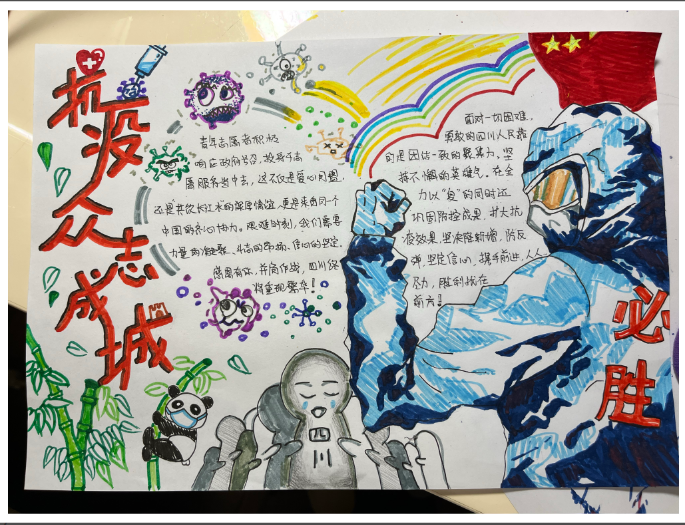 抗疫众志成城
青年志愿者积极
响应政府号召,投身于志
愿服务当中去,这不仅是爱心问题,
还是"共饮长江水"的深厚情谊,更是来自同一个
中国的齐心协力。艰难时刻,我们需要
力量的凝聚、斗志的昂扬、信心的坚定,
感恩有你,并肩作战,四川终
将重现繁华!
面对一切困难,
勇敢的四川人民靠
的是团结一致的凝聚力、坚
持不懈的英雄气。在全
力以"复"的同时还
巩固防控成果,扩大抗
疫效果,坚决胜新增,防反
弹,坚定信心,携手前进,人人
尽力,胜利就在
前方!
四
川
必
胜